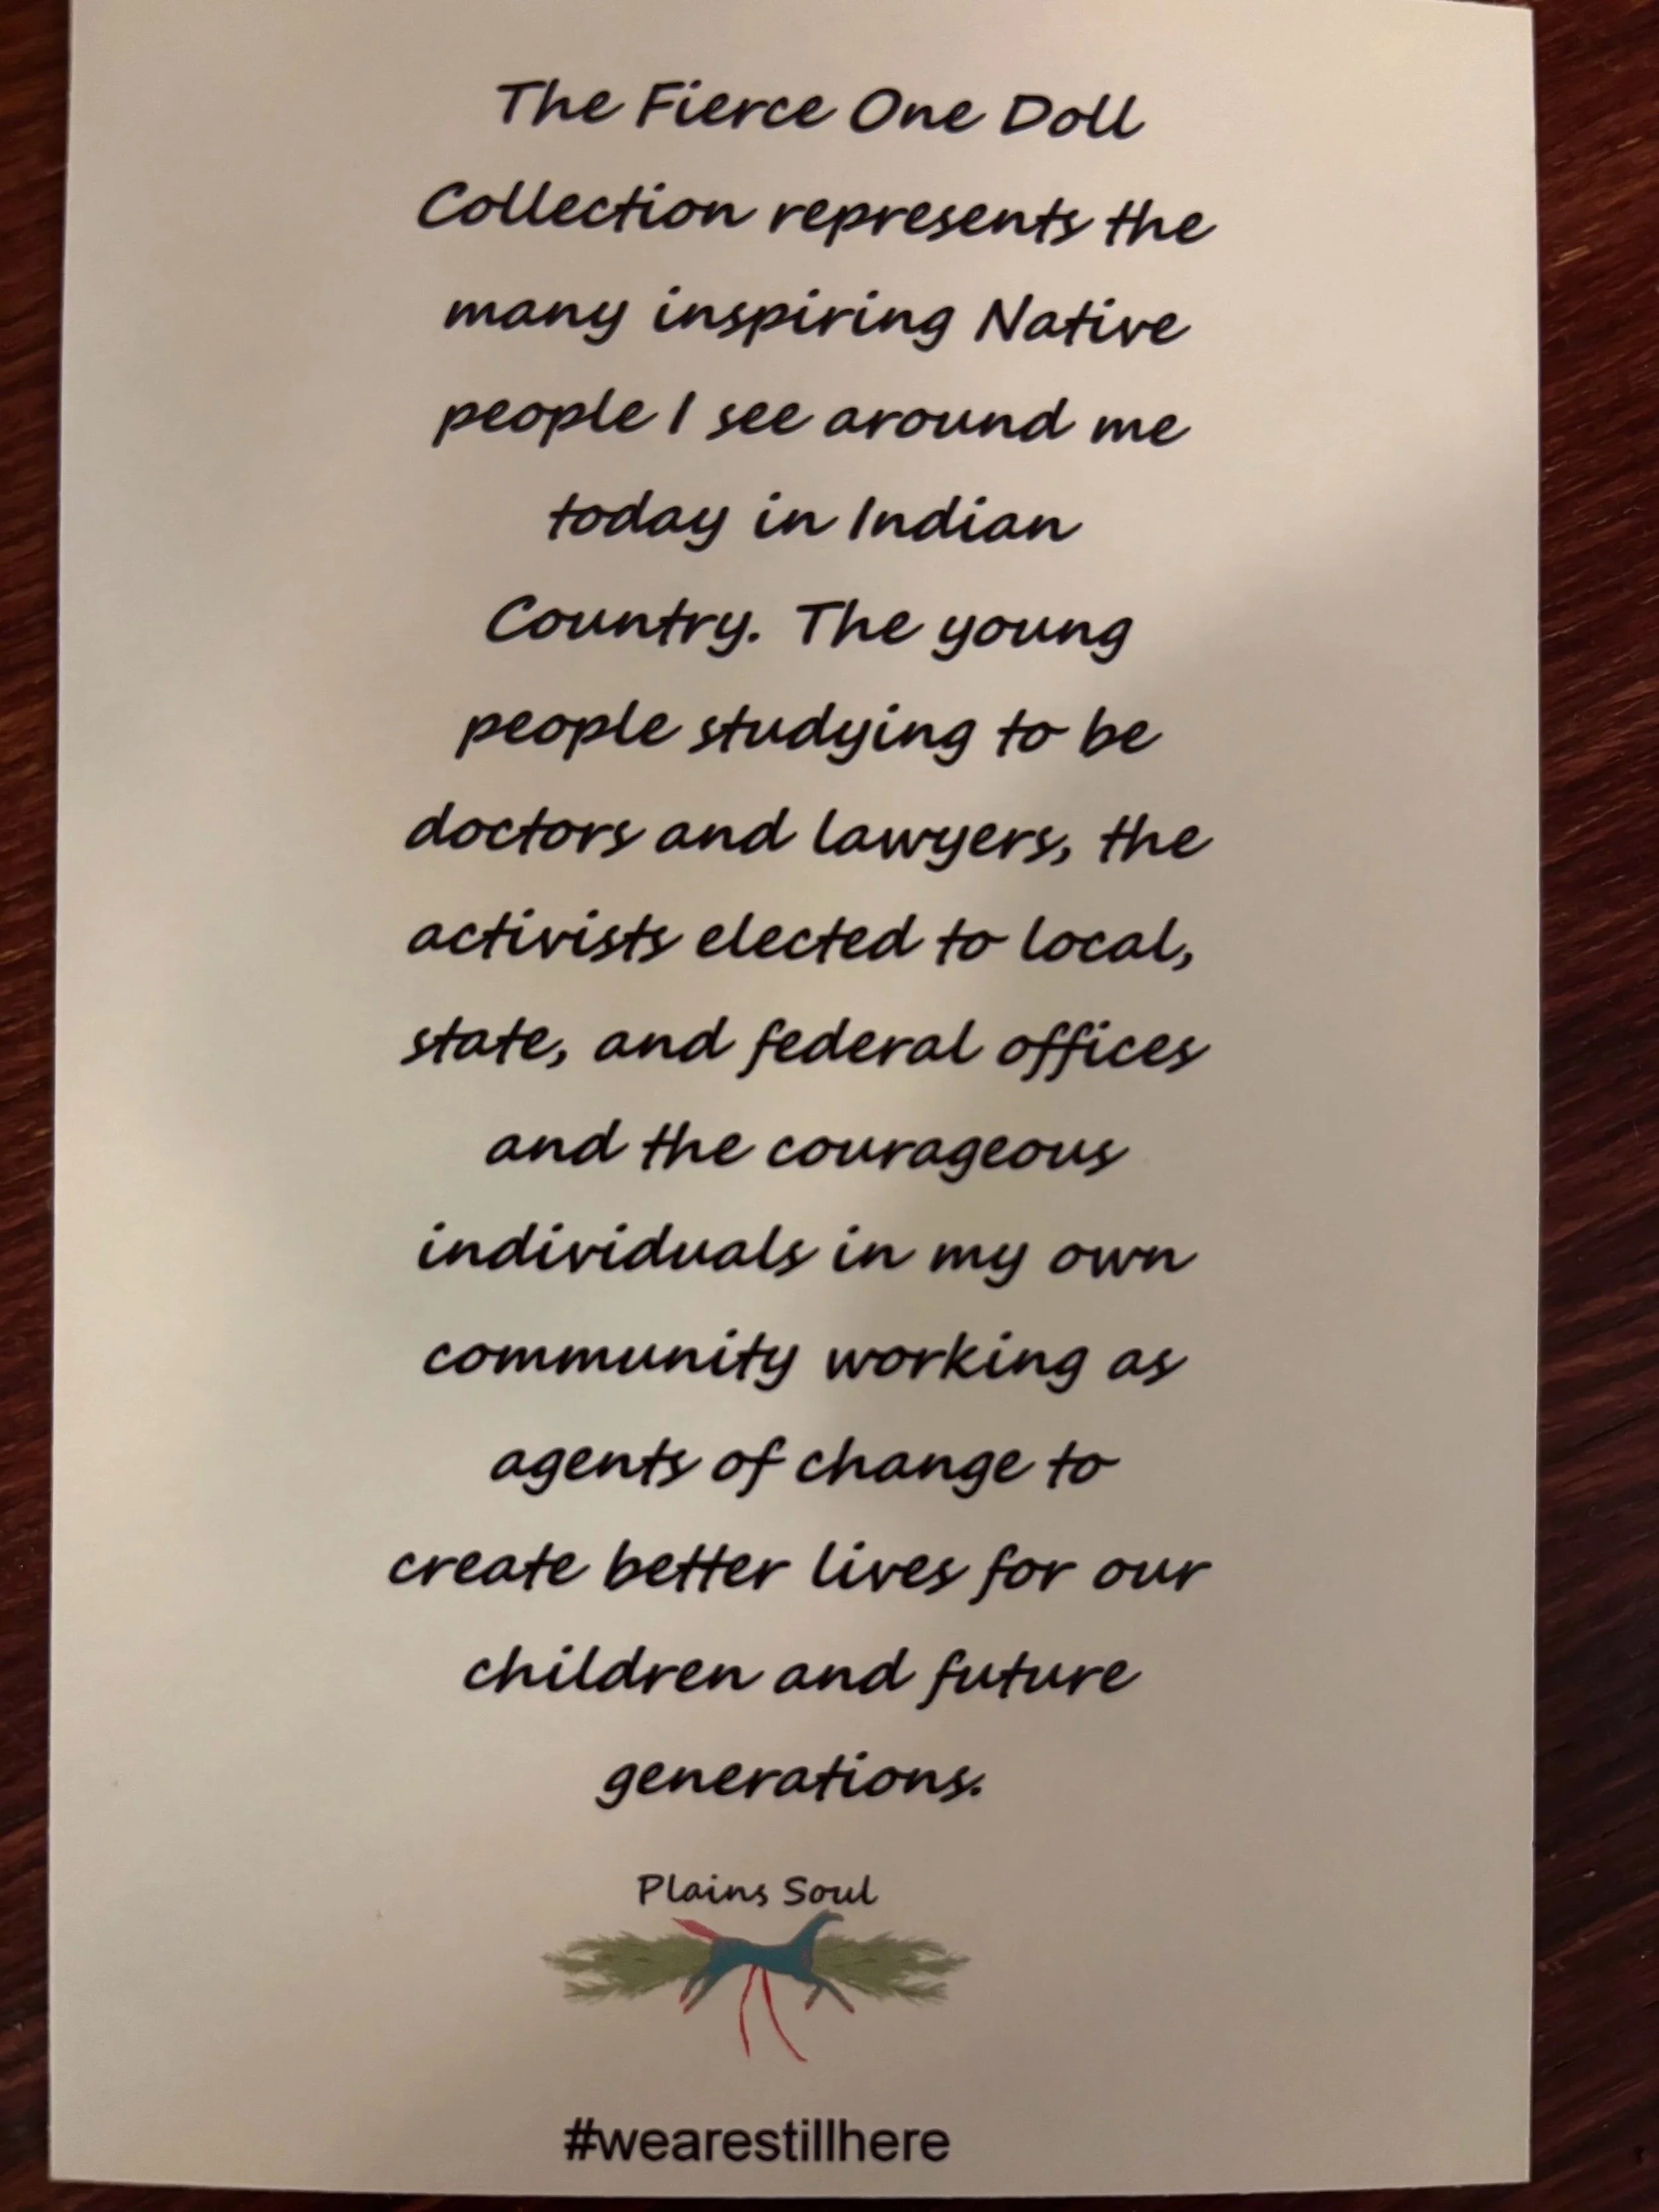 The Fierce One Doll
Collection represents the
many inspiring Native
people I see around me
today in Indian
Country. The young
people studying to be
doctors and lawyers, the
activists elected to local,
state, and federal offices
and the courageous
individuals in my own
community working as
agents of change to
create better lives for our
children and future
generations.
Plains Soul
#wearestillhere